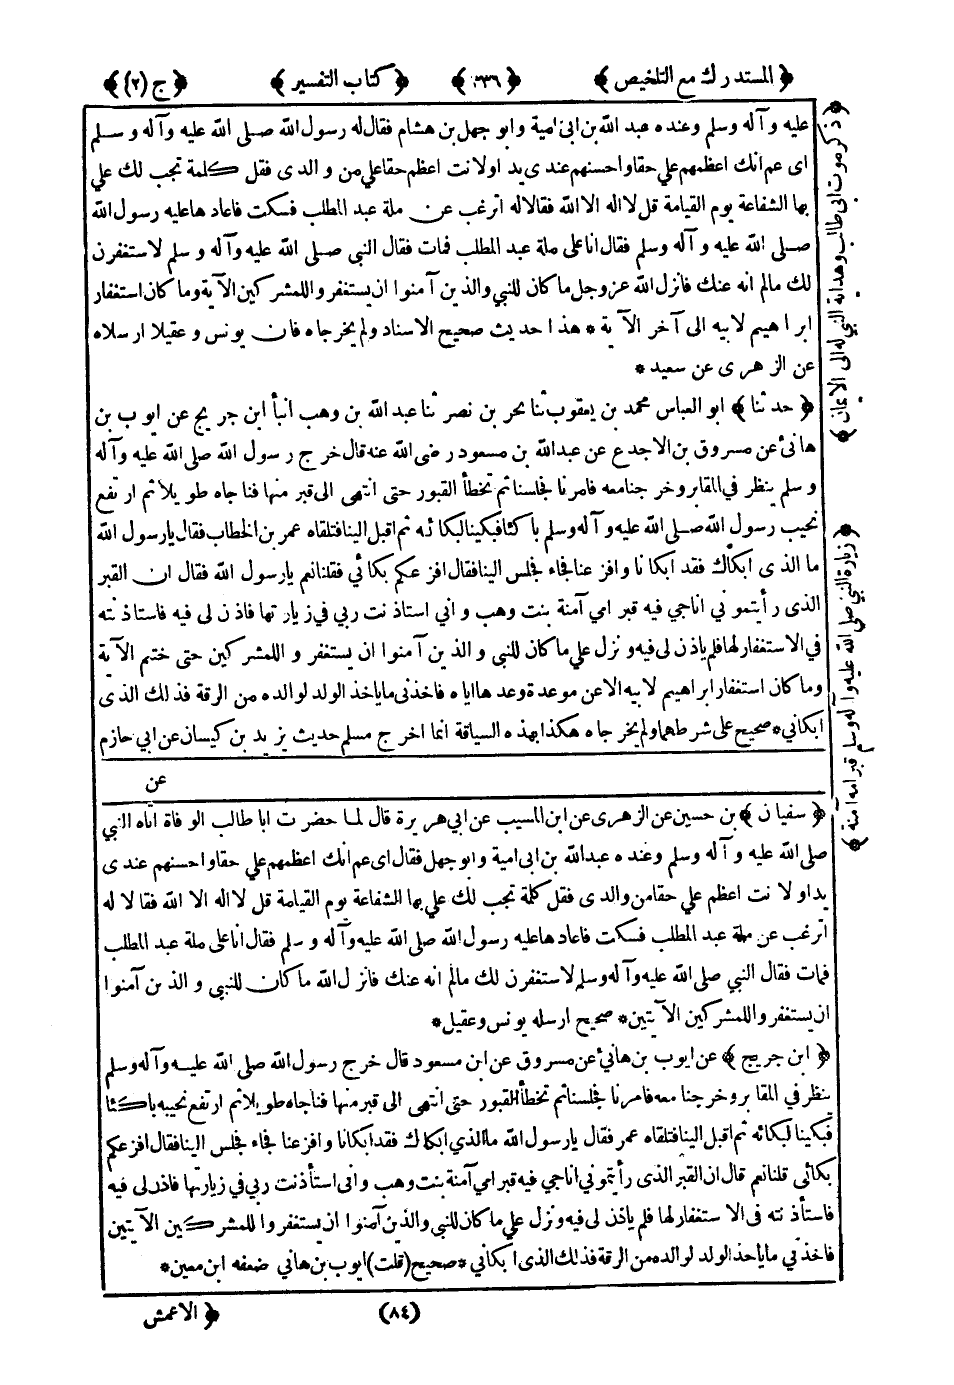 ﴿ المستدرك مع التلخيص ﴾ ﴿ ٣٣٦ ﴾ ﴿ كتاب التفسير ﴾ ﴿ ج (٢) ﴾
عليه وآله وسلم وعنده عبد الله بن ابى امية وابو جهل بن هشام فقال له رسول الله صلى الله عليه وآله وسلم
اى عم انك اعظمهم علي حقا واحسنهم عندى يدا ولانت اعظم حقا علي من والدى فقل كلمة تجب لك علي
بها الشفاعة يوم القيامة قل لا اله الا الله فقالا له اترغب عن ملة عبد المطلب فسكت فاعادها عليه رسول الله
صلى الله عليه وآله وسلم فقال انا على ملة عبد المطلب فمات فقال النبي صلى الله عليه وآله وسلم لاستغفرن
لك مالم انه عنك فانزل الله عزوجل ما كان للنبي والذين آمنوا ان يستغفروا للمشركين الآية وما كان استغفار
ابراهيم لابيه الى آخر الآية * هذا حديث صحيح الاسناد ولم يخرجاه فان يونس وعقيلا ارسلاه
عن الزهرى عن سعيد *
﴿ حدثنا ﴾ ابو العباس محمد بن يعقوب ثنا بحر بن نصر ثنا عبد الله بن وهب انبأ ابن جريج عن ايوب بن
هانئ عن مسروق بن الاجدع عن عبدالله بن مسعود رضى الله عنه قال خرج رسول الله صلى الله عليه وآله
وسلم ينظر في المقابر وخرجنا معه فامرنا فجلسنا ثم تخطأ القبور حتى انتهى الى قبر منها فناجاه طويلا ثم ارتفع
نحيب رسول الله صلى الله عليه وآله وسلم باكئا فبكينا لبكائه ثم اقبل الينا فتلقاه عمر بن الخطاب فقال يارسول الله
ما الذى ابكاك فقد ابكانا وافزعنا فجاء فجلس الينا فقال افزعكم بكائي فقلنا نعم يارسول الله فقال ان القبر
الذى رأيتموني اناجي فيه قبر امي آمنة بنت وهب واني استاذنت ربي في زيارتها فاذن لى فيه فاستاذنته
في الاستغفار لها فلم ياذن لى فيه ونزل علي ما كان للنبي والذين آمنوا ان يستغفروا للمشركين حتى ختم الآية
وما كان استغفار ابراهيم لابيه الا عن موعدة وعدها اياه فاخذنى ما ياخذ الولد لوالده من الرقة فذلك الذى
ابكاني * صحيح على شرطهما ولم يخرجاه هكذا بهذه السياقة انما اخرج مسلم حديث يزيد بن كيسان عن ابي حازم
عن
﴿ سفيان ﴾ بن حسين عن الزهرى عن ابن المسيب عن ابي هريرة قال لما حضرت ابا طالب الوفاة اتاه النبي
صلى الله عليه وآله وسلم وعنده عبدالله بن ابى امية وابو جهل فقال اى عم انك اعظمهم علي حقا واحسنهم عندى
يدا ولانت اعظم علي حقا من والدى فقل كلمة تجب لك علي بها الشفاعة يوم القيامة قل لا اله الا الله فقالا له
اترغب عن ملة عبد المطلب فسكت فاعادها عليه رسول الله صلى الله عليه وآله وسلم فقال انا على ملة عبد المطلب
فمات فقال النبي صلى الله عليه وآله وسلم لاستغفرن لك مالم انه عنك فانزل الله ما كان للنبي والذين آمنوا
ان يستغفروا للمشركين الآيتين * صحيح ارسله يونس وعقيل *
﴿ ابن جريج ﴾ عن ايوب بن هانئ عن مسروق عن ابن مسعود قال خرج رسول الله صلى الله عليه وآله وسلم
ينظر في المقابر وخرجنا معه فامرنا فجلسنا ثم تخطأ القبور حتى انتهى الى قبر منها فناجاه طويلا ثم ارتفع نحيبه باكئا
فبكينا لبكائه ثم اقبل الينا فتلقاه عمر فقال يارسول الله ما الذي ابكاك فقد ابكانا وافزعنا فجاء فجلس الينا فقال افزعكم
بكائى قلنا نعم قال ان القبر الذى رأيتموني اناجي فيه قبر امي آمنة بنت وهب وانى استأذنت ربي في زيارتها فاذن لى فيه
فاستأذنته فى الاستغفار لها فلم ياذن لى فيه ونزل علي ما كان للنبي والذين آمنوا ان يستغفروا للمشركين الآيتين
فاخذني ما ياخذ الولد لوالده من الرقة فذلك الذى ابكاني * صحيح (قلت) ايوب بن هاني ضعفه ابن معين *
﴿ ذكر موت ابى طالب وهداية النبي له الى الايمان ﴾
﴿ زيارة النبي صلى الله عليه وآله وسلم قبر امه آمنة ﴾
(٨٤)
﴿ الاعمش